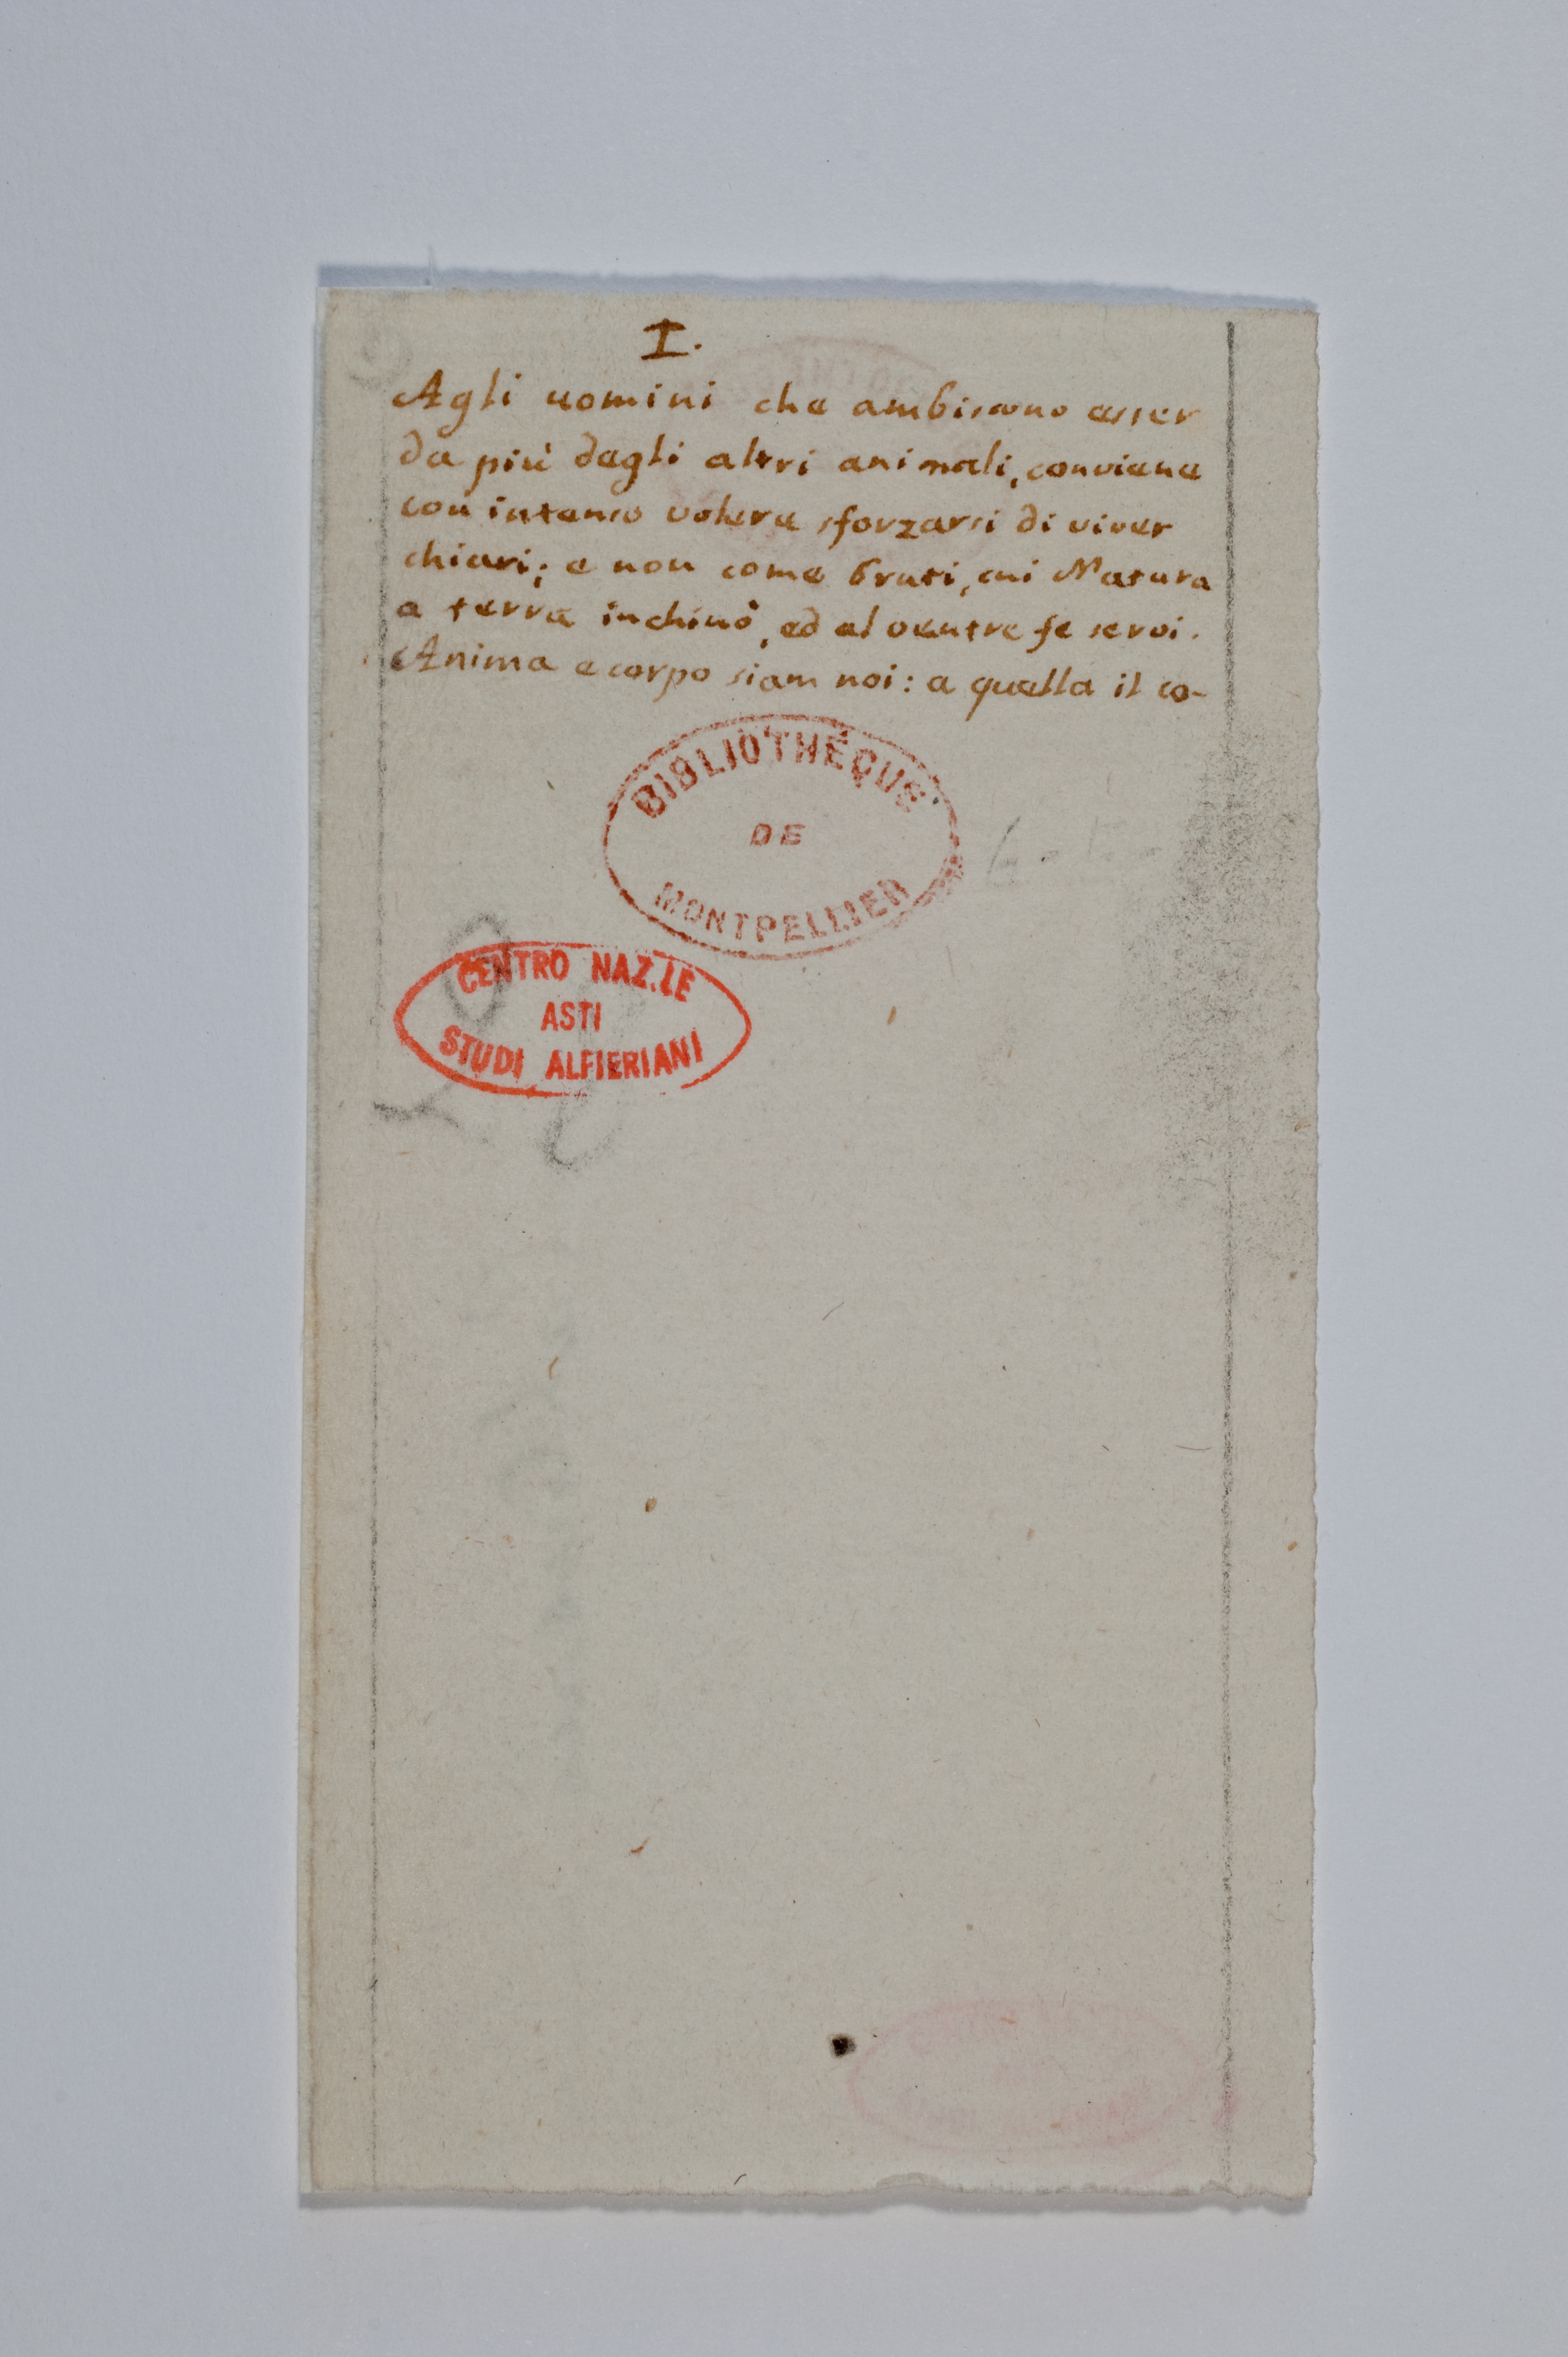 I.
Agli uomini che ambiscono esser
da più degli altri animali, conviene
con intenso volere sforzarsi di viver
chiari; e non come bruti, cui Natura
a terra inchinò, ed al ventre fe servi.
Anima e corpo siam noi: a quella il co-
BIBLIOTHÉQUE
DE
MONTPELLIER
CENTRO NAZ.LE
ASTI
STUDI ALFIERIANI